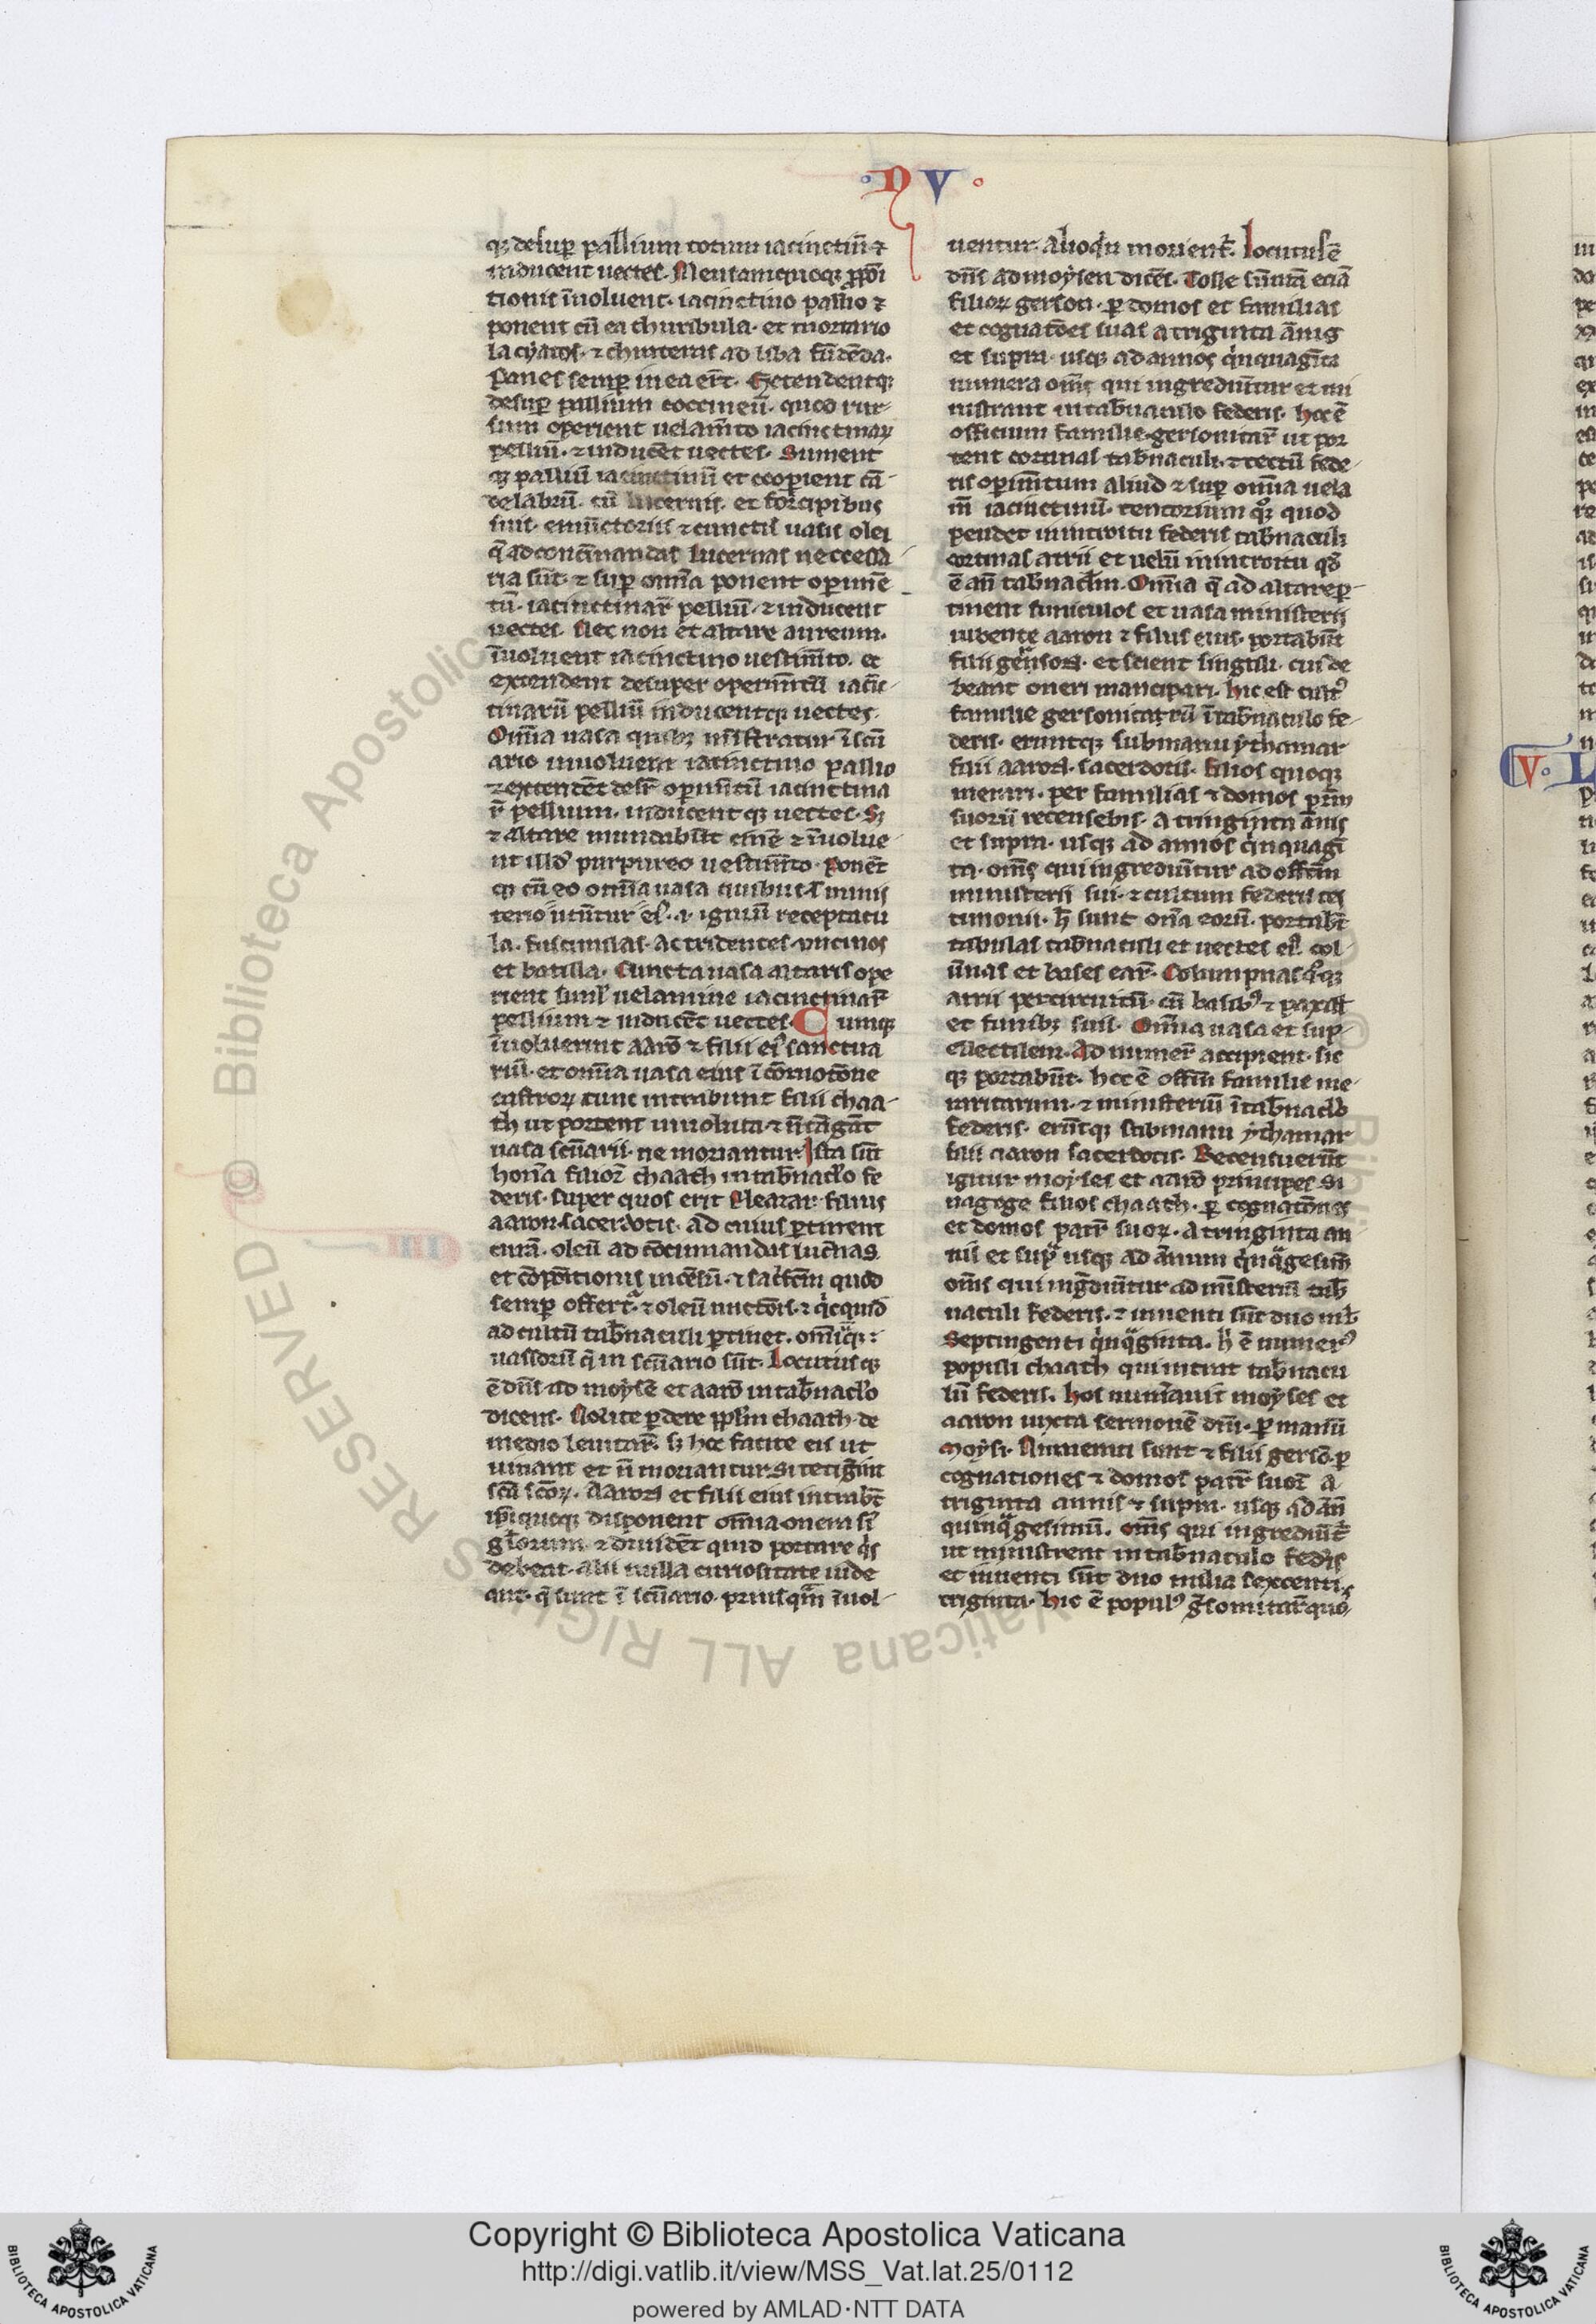 · N V ·
qꝫ desuꝑ pallium totum iacinctiū ⁊
inducent uectes. Mensam quoqꝫ ꝓpōi
tionis īuoluent. iacinctino pallio ⁊
ponent cū ea thuribula. et mortario
la cyatos. ⁊ chrateras ad liba fūdēda.
Panes semꝑ in ea erūt. Extendentqꝫ
desuꝑ pallium coccineū. quod rur-
sum operient uelam̄to iacinctinaꝝ
pelliū. ⁊ inducēt uectes. Sument
qꝫ palliū iacinctinū et coopient cā-
delabrū. cū lucernis. et forcipibus
suis. emūctoriis ⁊ cunctis uasis olei
q̄ ad concīnandas lucernas neccessa-
ria sūt. ⁊ suꝑ omīa ponent opimē-
tū. iacinctinaꝝ pelliū. ⁊ inducent
uectes. Nec non et altare aureum.
īuoluent iacinctino uestimēto. et
extendent desuper operim̄tū iacīc-
tinarū pelliū inducentqꝫ uectes.
Omīa uasa quibꝫ mīstratur ī scū
ario inuoluent iacinctino pallio
⁊ extendēt desuꝑ opim̄tū iacinctina
ꝝ pellium. inducent qꝫ uectes. Sꝫ
⁊ altare mundabūt cinē ⁊ īuolue-
nt illd̄ purpureo uestim̄to. Ponēt
qꝫ cū eo omīa uasa quibus ī minis
terio utūtur eiꝰ. i. igniū receptacu
la. fuscinulas. ac tridentes. uncinos
et batilla. Cuncta uasa altaris ope
rient simul uelamine iacinctinaꝝ
pellium ⁊ inducēt uectes. Cumqꝫ
īuoluerint aarō ⁊ filii eiꝰ sanctua
riū. et omīa uasa eius ī cōmotōne
castroꝝ tunc intrabunt filii chaa-
th ut portent inuoluta ⁊ n̄ tāgāt
uasa scūarii. ne moriantur. Ista sūt
honīa filioꝝ chaath in tab̄nac̄lo fe
deris. super quos erit Eleazar filius
aaron sacerdotis. ad cuius ꝑtinent
curā. oleū ad cōcinnandas luc̄nas.
et cōpōitionis incēsū. ⁊ sac̄fīciū quod
semꝑ offert̄. ⁊ oleū unctōis. ⁊ q̇cquid
ad cultū tab̄naculi ꝑtinet. omniūqꝫ
uassorū q̄ in scūario sūt. Locutusqꝫ
ē dn̄s ad moysē et aarō in tab̄nac̄lo
dicens. Nolite ꝑdere pp̄lm chaath de
medio leuitaꝝ. sꝫ hoc facite eis ut
uiuant et n̄ moriantur. si tetiḡint
scā scōꝝ. Aaron et filii eius intrabūt
ip̄i quoqꝫ disponent omīa onera sī
gl̄orum. ⁊ diuidēt quid portare q̇s
debeat. alii nulla curiositate uide
ant. q̄ sunt ī scūario. priusqm̄ īuol-
uentur. alioq̇n morient̄. Locutus ē
dn̄s ad moysen dicēs. Tolle sūmā eciā
filioꝝ gerson. ꝑ domos et familias
et cognatōes suas a triginta ānis
et supra. usqꝫ ad annos q̇nquagīta
numera omēs qui ingrediūtur et mi
nistrant in tab̄naculo federis. hoc ē
officium familie gersonitaꝝ ut por
tent cortinas tab̄naculi. ⁊ tectū fede-
ris opim̄tum aliud ⁊ suꝑ omīa uela
m̄ iacinctinū. tentorium qꝫ quod
pendet in introitu federis tab̄naculi
cortinas atrii et uelū in introitu qd̄
ē an̄ tab̄nac̄lm. Omīa q̄ ad altare ꝑ-
tinent funiculos et uasa ministerii
iubente aaron ⁊ filiis eius. portabūt
filii gerson. et scient singuli. cui de
beant oneri mancipari. hic est cultꝰ
familie gersonitarū ī tab̄naculo fe-
deris. eruntqꝫ sub manu ythamar
filii aaron. sacerdotis. filios quoqꝫ
merari. per familias ⁊ domos pr̄m
suorū recensebis. a tringinta ānis
et supra. usqꝫ ad annos q̇nquagī
ta. omēs qui ingrediūtur ad offīm
ministerii sui. ⁊ cultum federis tes
timonii. h̄ sunt ōna eorū. portabūt
tabulas tab̄naculi et uectes eiꝰ. col-
ūnas et bases eaꝝ. Columpnas q̊qꝫ
atrii per circuitū. cū basibꝰ ⁊ paxill̄
et funibꝫ suis. Omīa uasa et sup-
ellectilem. Ad numeꝝ accipient. sic
qꝫ portabūt. hoc ē offīm familie me-
raritarum. ⁊ ministeriū ī tab̄nac̄lo
federis. erūtqꝫ sub manu ythamar
filii aaron sacerdotis. Recensuerūt
igitur moyses et aarō principes si
nagoge filios chaath. ꝑ cognatōnes
et domos patꝝ suoꝝ. a tringinta an-
nis et supͣ usqꝫ ad ānum q̇nqͣgesimū
omīs qui ingrediūtur ad mīsteriū tab̄
naculi federis. ⁊ inuenti sūt duo mł.
Septingenti q̇nqͣginta. h̄ ē numerꝰ
populi chaath qui intrat tab̄nacu
lū federis. hos numauit moyses et
aaron iuxta sermonē dn̄i. ꝑ manū
Moysi. Numerati sunt ⁊ filii gersō. ꝑ
cognationes ⁊ domos patꝝ suoꝝ a
triginta annis ⁊ supra. usqꝫ ad ān̄
quinqͣgesimū. omīs qui ingrediūt̄
ut ministrent in tab̄naculo federis
et inuenti sūt duo milia sexcenti
triginta. hic ē populꝰ ḡsomitaꝝ quos
V. L
© Biblioteca Apostolica Vaticana ALL RIGHTS RESERVED
Copyright © Biblioteca Apostolica Vaticana
http://digi.vatlib.it/view/MSS_Vat.lat.25/0112
powered by AMLAD·NTT DATA
BIBLIOTECA APOSTOLICA VATICANA
BIBLIOTECA APOSTOLICA VATICANA